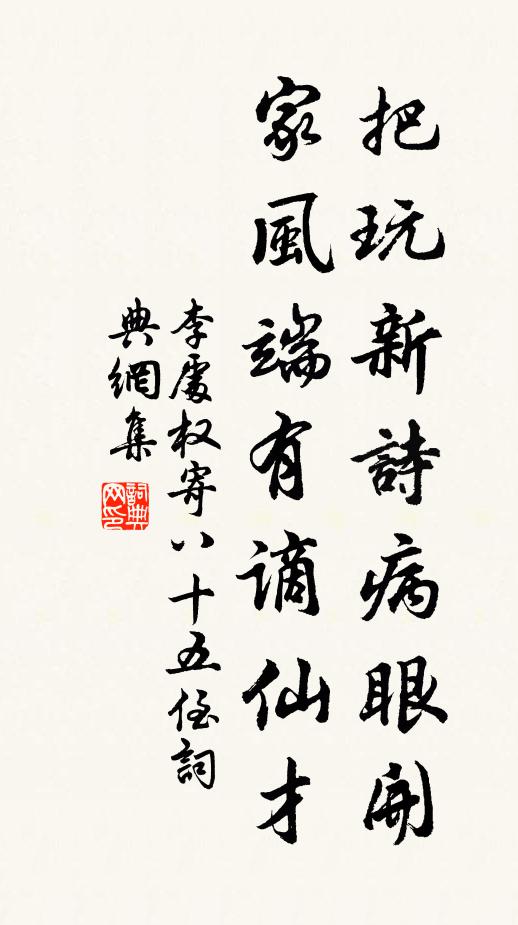 把玩新詩病眼開
家風端有謫仙才
李處权寄八十五侄詞
典網集
詞典
网印